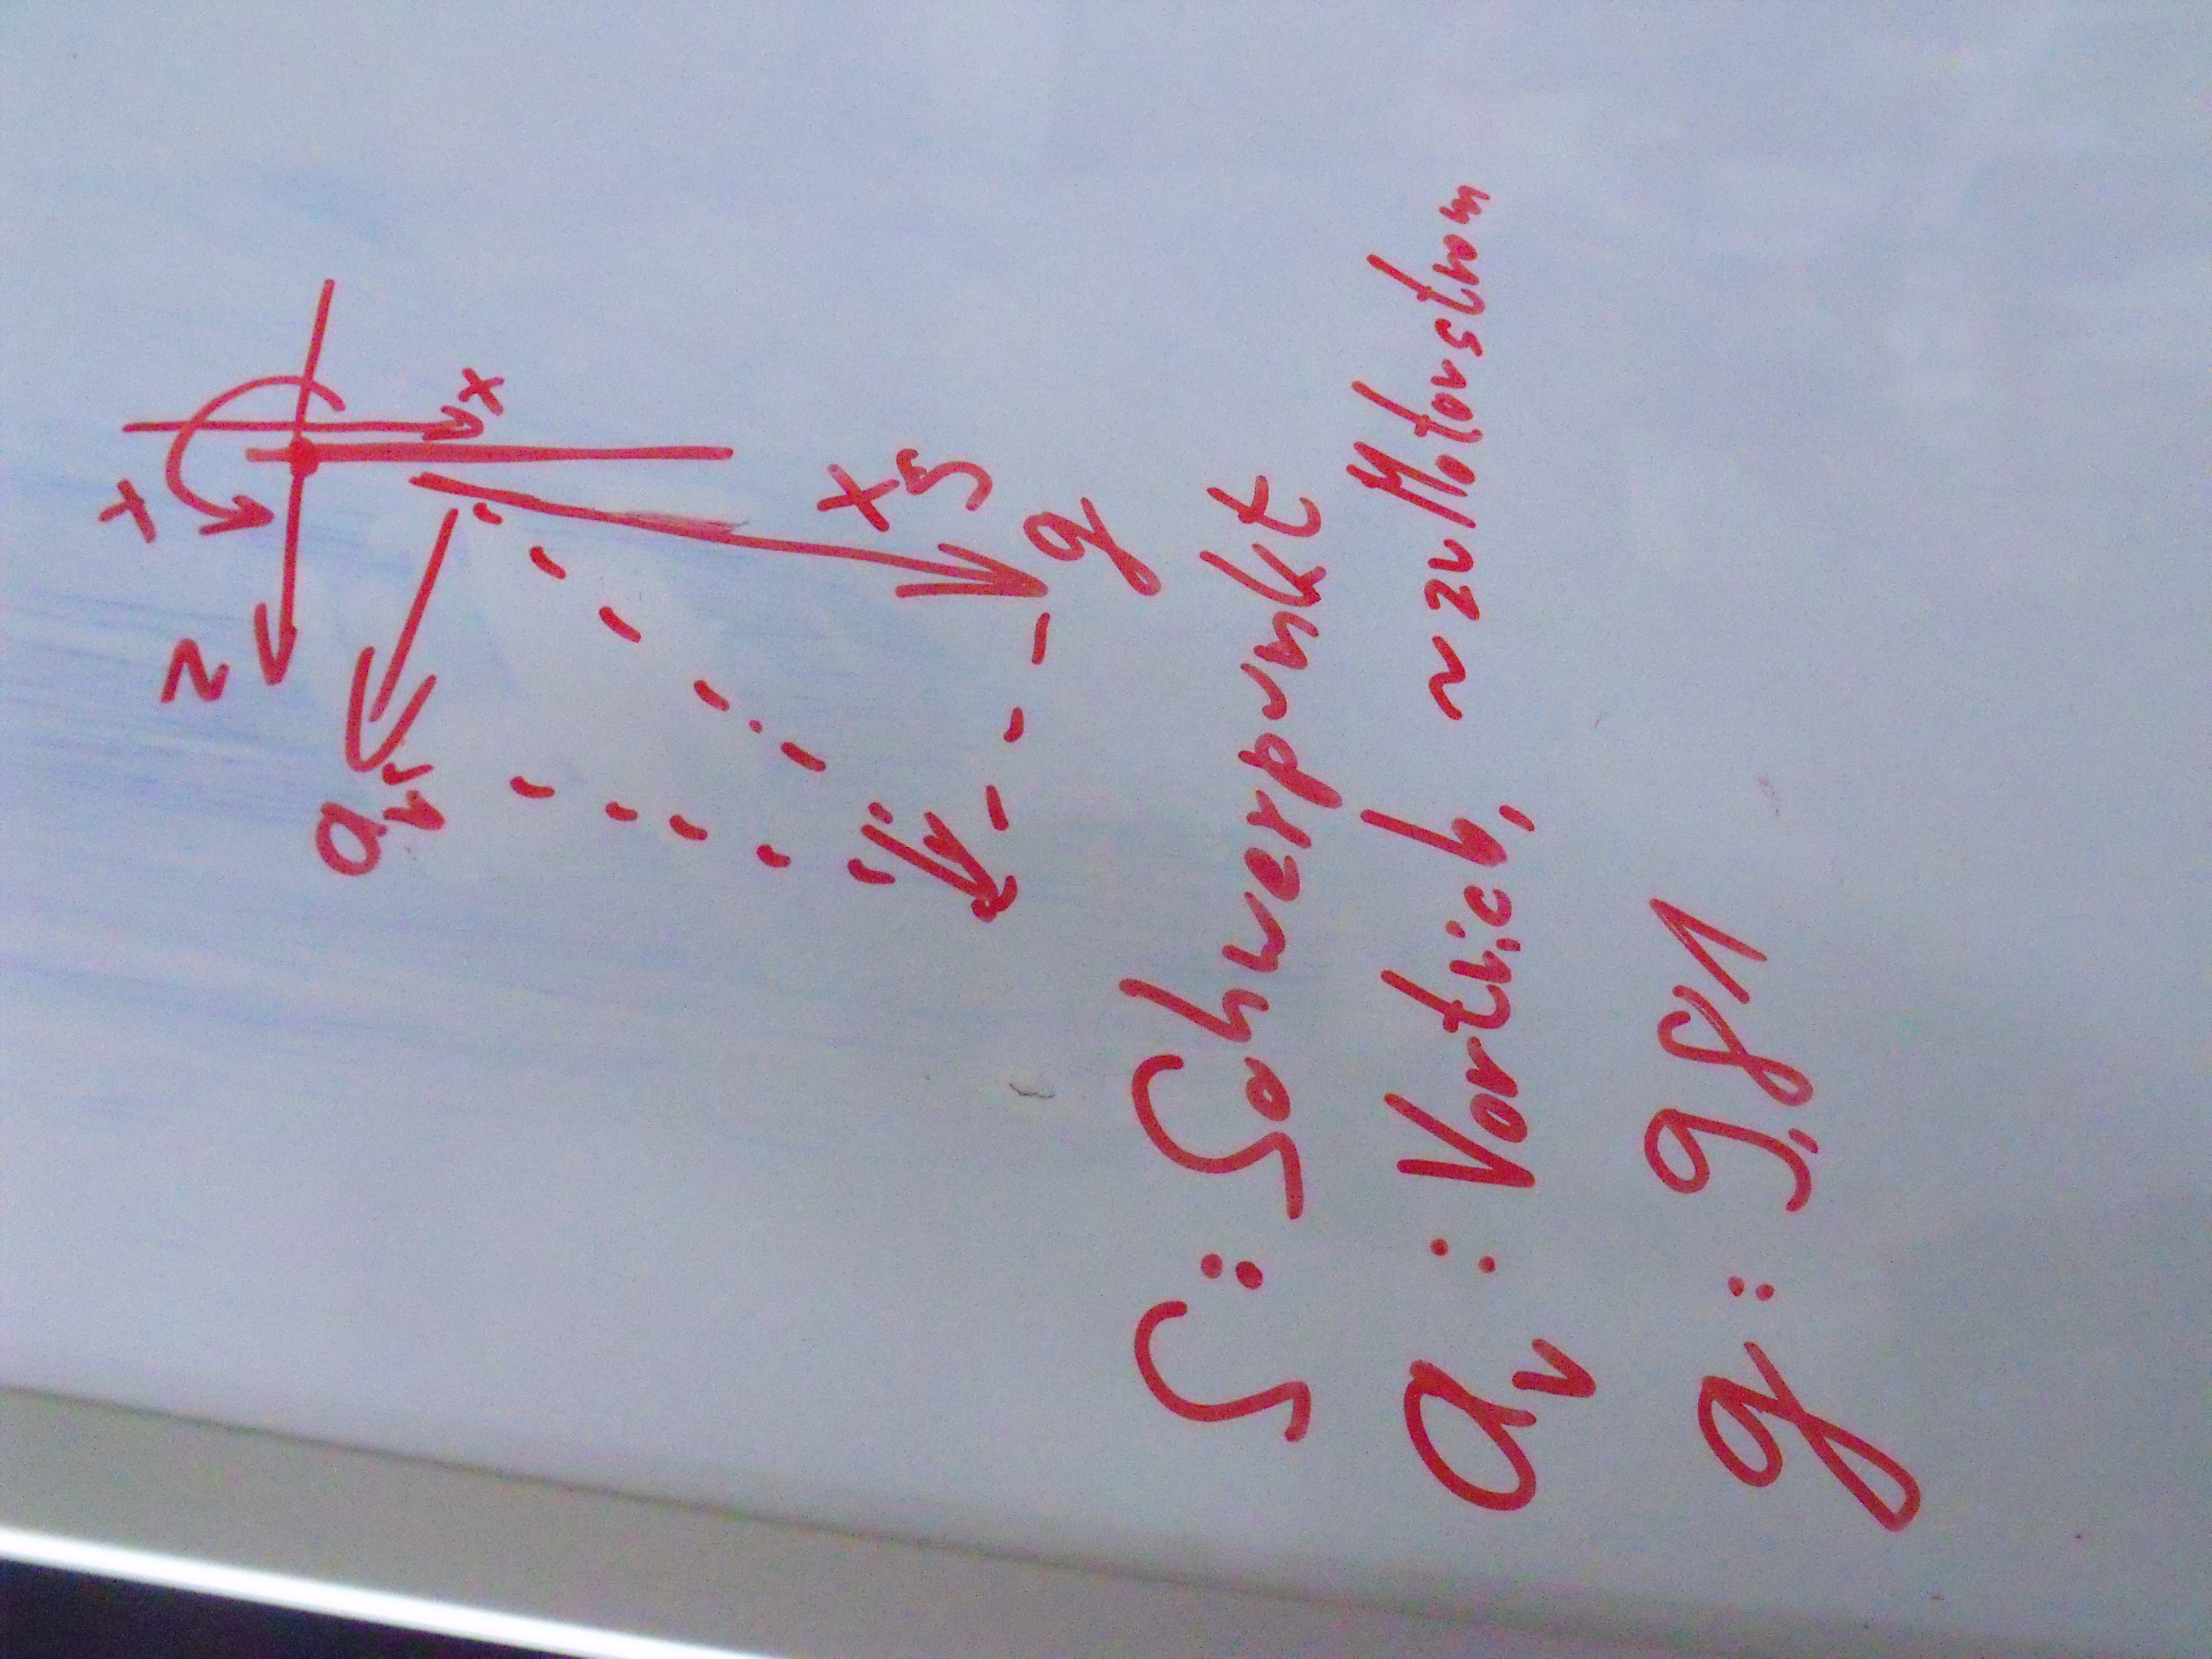 x
x
z
x s
g
a v
S: Schwerpunkt
a v : Vortrieb, ~ zu Motorstrom
g: 9,81